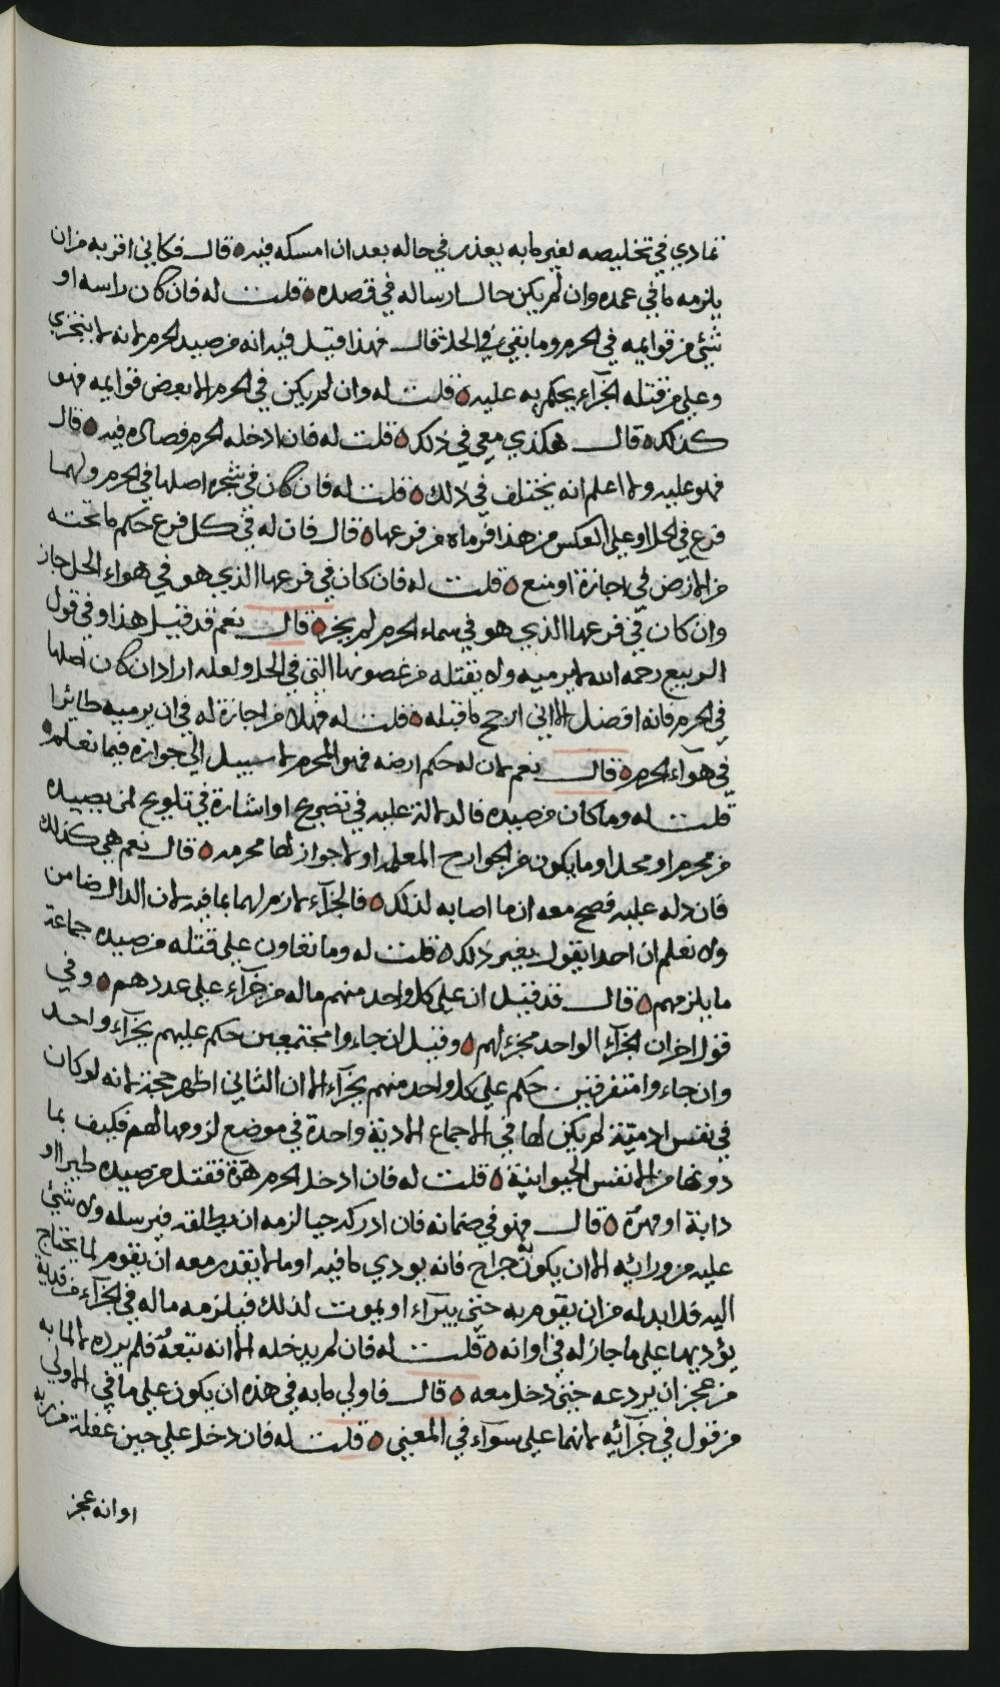 تمادي في تخليصه لغير ما به يعذر في حاله بعد ان امسكه فيه ه قال فكاني اقربه من ان
يلزمه ما في عمده وان لم يكن حال ارساله في قصده ه قلت له فان كان راسه او
شيء من قوايمه في الحرم وما بقي في الحل ه قال فهذا قيل فيه انه من صيد الحرم لانه لا يتجزي
وعلي من قتله الجزآء يحكم به عليه ه قلت له وان لم يكن في الحرم الا بعض قوايمه فهو
كذلك ه قال هكذي معي في ذلك ه قلت له فان ادخله الحرم فصاده فيه ه قال
فهو عليه ولا اعلم انه يختلف في ذلك ه قلت له فان كان في شجره اصلها في الحرم ولها
فرع في الحل او علي العكس من هذا فرماه من فرعها ه قال فان له في كل فرع حكم ما تحته
من الارض في اجازة او منع ه قلت له فان كان في فرعها الذي هو في هواء الحل جاز
وان كان في فرعها الذي هو في سماء الحرم لم يجز ه قال نعم قد قيل هذا وفي قول
الربيع رحمه الله لا يرميه ولا يقتله من غصونها التي في الحل ولعله اراد ان كان اصلها
في الحرم فانه افضل الا اني ارجح ما قبله ه قلت له فهلا من اجازة له في ان يرميه طائرا
في هوآء الحرم ه قال نعم لان له حكم ارضه فهو المحرم لا سبيل الي جوازه فيما نعلمه
قلت له وما كان من صيده فالدلالة عليه في تصريح او اشارة في تلويح لمن يصيده
من محرم او محل او ما يكون من الجوارح المعلمه او لا جواز لها محرمه ه قال نعم هي كذلك
فان دله عليه فصح معه ان ما اصابه لذلك ه فالجزآء لازم لهما بما فيه لان الدال ضامن
ولا نعلم ان احدا يقول بغير ذلك ه قلت له وما تعاون علي قتله من صيده جماعة
ما يلزمهم ه قال قد قيل ان علي كل واحد منهم ما له من جزآء علي عددهم ه وفي
قول اخر ان الجزآء الواحد مجزء لهم ه وقيل ان جاءوا مجتمعين حكم عليهم بجزآء واحد
وان جاءوا متفرقين حكم علي كل واحد منهم بجزآء الا ان الثاني اظهر حجة لانه لو كان
في نفس ادميّة لم يكن لها في الاجماع الا دية واحدة في موضع لزومها لهم فكيف بما
دونها من الانفس الحيوانية ه قلت له فان ادخل الحرم هرة فقتل من صيده طيرا او
دابة او مهرة ه قال فهو في ضمانه فان ادركه حيا لزمه ان يطلقه فيرسله ولا شيء
عليه من ورائه الا ان يكون به جراح فانه يودي ما فيه او ما لا يقدر معه ان يقوم لما يحتاج
اليه فلا بد له من ان يقوم به حتي يبرآء او يموت لذلك فيلزمه ما له في الجزآء من فدية
يؤديها علي ما جاز له في اوانه ه قلت له فان لم يدخله الا انه تبعه فلم يرده لا لما به
من عجز ان يردعه حتي دخل معه ه قال فاولي ما به في هذه ان يكون علي ما في الاولي
من قول في جزآئه لانهما علي سوآء في المعني ه قلت له فان دخل علي حين غفلة من ربه
او انه عجز